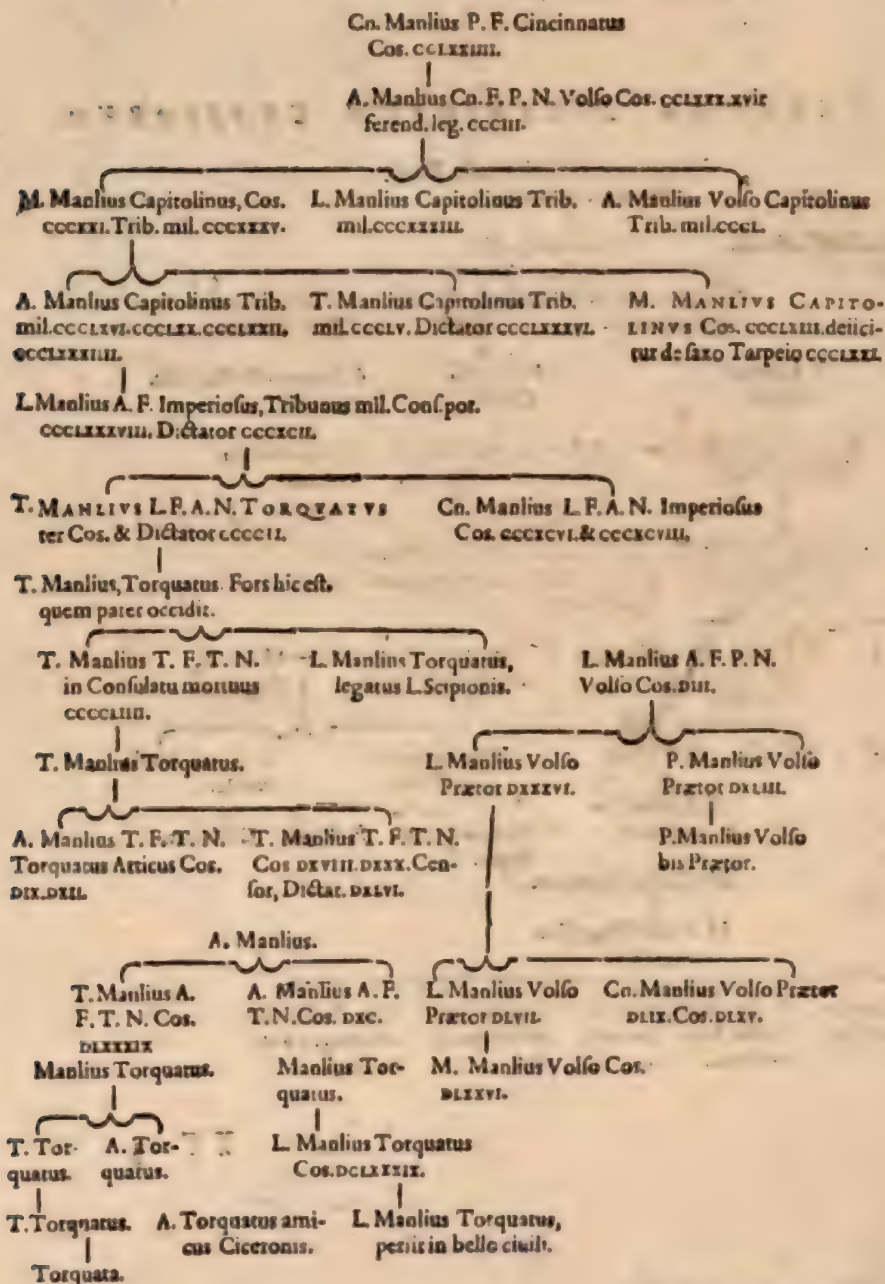 Cn. Manlius P. F. Cincinnatus
Cos. CCLXXIIII.
A. Manlius Cn. F. P. N. Volſo Cos. CCLXXX. xvir
ferend. leg. CCCIII.
M. Manlius Capitolinus, Cos.
CCCXXI. Trib. mil. CCCXXXV.
L. Manlius Capitolinus Trib.
mil. CCCXXXIII.
A. Manlius Volſo Capitolinus
Trib. mil. CCCL.
A. Manlius Capitolinus Trib.
mil. CCCLXVI. CCCLXX. CCCLXXII.
CCCLXXXIIII.
T. Manlius Capitolinus Trib.
mil. CCCLV. Dictator CCCLXXXVI.
M. MANLIVS CAPITO-
LINVS Cos. CCCLXIII. deiici-
tur de ſaxo Tarpeio CCCLXXI.
L. Manlius A. F. Imperioſus, Tribunus mil. Conſ. pot.
CCCLXXXVIII. Dictator CCCXCII.
T. MANLIVS L. F. A. N. TORQVATVS
ter Cos. & Dictator CCCCII.
Cn. Manlius L. F. A. N. Imperioſus
Cos. CCCXCVI. & CCCXCVIII.
T. Manlius, Torquatus. Fors hic eſt.
quem pater occidit.
T. Manlius T. F. T. N.
in Conſulatu mortuus
CCCCLIIII.
L. Manlius Torquatus,
legatus L. Scipionis.
L. Manlius A. F. P. N.
Volſo Cos. DIII.
T. Manlius Torquatus.
L. Manlius Volſo
Prætor DXXXVI.
P. Manlius Volſo
Prætor DXLIII.
A. Manlius T. F. T. N.
Torquatus Atticus Cos.
DIX. DXII.
T. Manlius T. F. T. N.
Cos DXVIII. DXXX. Cen-
ſor, Dictat. DXLVI.
P. Manlius Volſo
bis Prætor.
A. Manlius.
T. Manlius A.
F. T. N. Cos.
DLXXXIX
A. Manlius A. F.
T. N. Cos. DXC.
L. Manlius Volſo
Prætor DLVII.
Cn. Manlius Volſo Prætor
DLIX. Cos. DLXV.
Manlius Torquatus.
Manlius Tor-
quatus.
M. Manlius Volſo Cos.
DLXXVI.
T. Tor-
quatus.
A. Tor-
quatus.
L. Manlius Torquatus
Cos. DCLXXXIX.
T. Torquatus.
A. Torquatus ami-
cus Ciceronis.
L. Manlius Torquatus,
periit in bello ciuili.
Torquata.